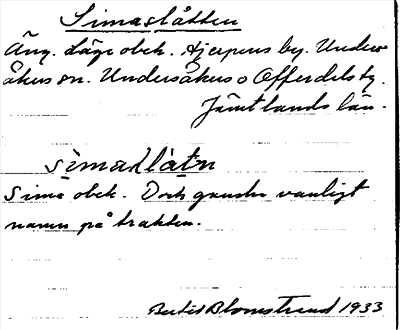 Simaslåtten
Äng. Läge obek. Hjerpens by. Under-
åkers sn. Undersåkers o Offerdels tg.
Jämtlands län.
simaslàtn
Sima obek. Dock ganska vanligt
namn på trakten.
Bertil Blomstrand 1933